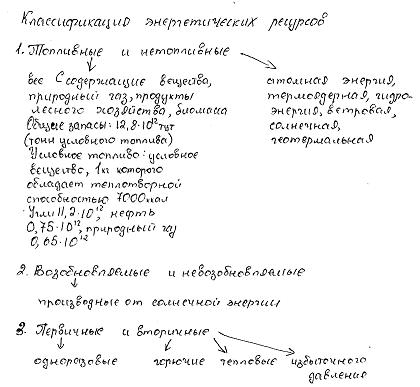 Классификация энергетических ресурсов
1. Топливные и нетопливные
все С содержащие вещества,
природный газ, продукты
лесного хозяйства, биомасса
Общие запасы: 12,8·10¹² тут
(тонн условного топлива)
Условное топливо: условное
вещество, 1 кг которого
обладает теплотворной
способностью 7000 ккал
Угли 11,2·10¹², нефть
0,75·10¹², природный газ
0,65·10¹²
атомная энергия,
термоядерная, гидро-
энергия, ветровая,
солнечная,
геотермальная
2. Возобновляемые и невозобновляемые
производные от солнечной энергии
3. Первичные и вторичные
одноразовые горючие тепловые избыточного
давления